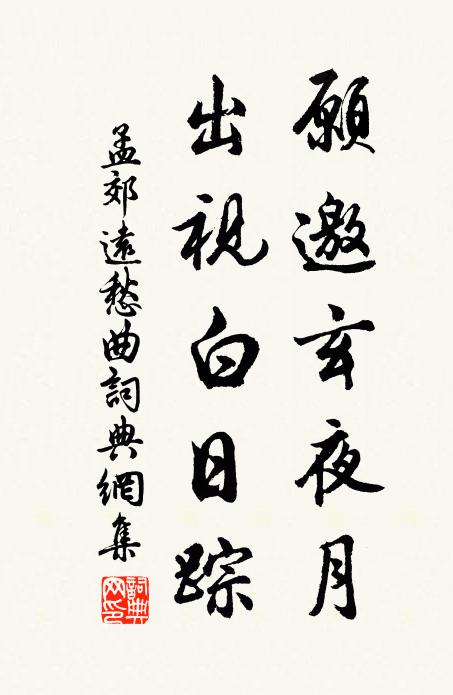 願邀玄夜月
出視白日踪
孟郊遠愁曲詞典網集
詞典
网印